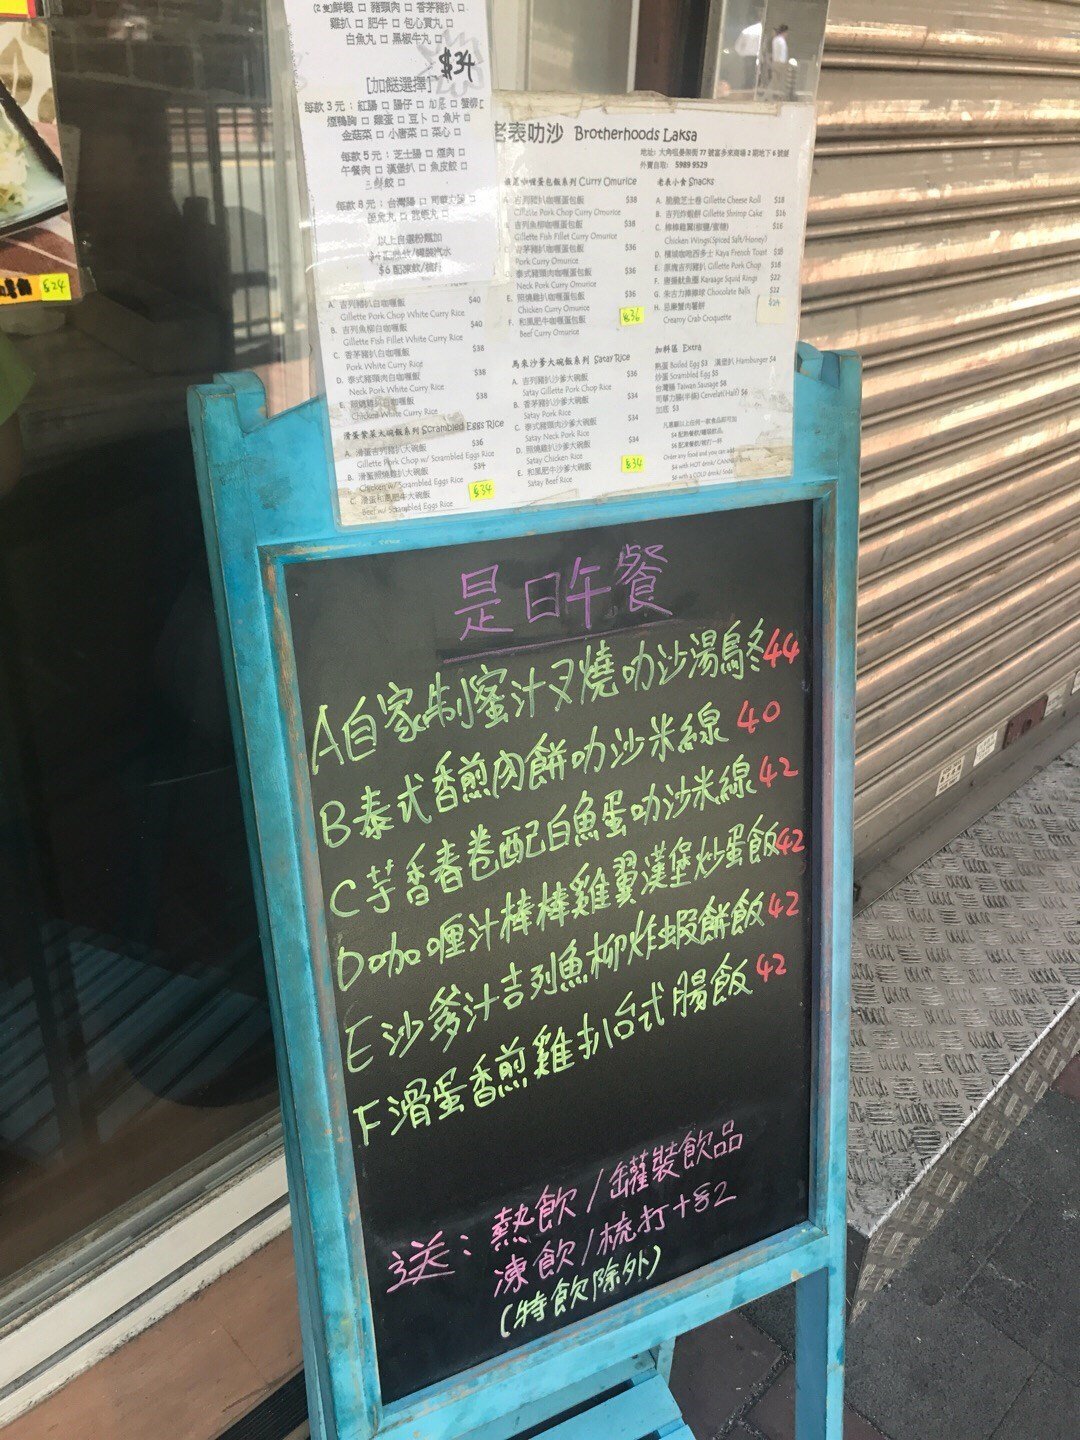 (2隻)鮮蝦 □ 豬頸肉 □ 香茅豬扒 □
雞扒 □ 肥牛 □ 包心貢丸 □
白魚丸 □ 黑椒牛丸 □
$34
[加餸選擇]
每款3元：紅腸 □ 腸仔 □ 加底 □ 蟹柳 □
煙鴨胸 □ 雞蛋 □ 豆卜 □ 魚片 □
金菇菜 □ 小唐菜 □ 菜心 □
每款5元：芝士腸 □ 煙肉 □
午餐肉 □ 漢堡扒 □ 魚皮餃 □
每款8元：台灣腸 □
以上自選粉麵加
$6 配凍飲/梳打
$24
老表叻沙 Brotherhoods Laksa
地址: 大角咀晏架街 77 號富多來商場 2 期地下 6 號舖
外賣自取: 5989 9529
咖喱蛋包飯系列 Curry Omurice
A. 吉列豬扒咖喱蛋包飯 $38
Gillette Pork Chop Curry Omurice
B. 吉列魚柳咖喱蛋包飯 $38
Gillette Fish Fillet Curry Omurice
香茅豬扒咖喱蛋包飯 $36
Pork Curry Omurice
泰式豬頸肉咖喱蛋包飯 $36
Neck Pork Curry Omurice
E. 照燒雞扒咖喱蛋包飯 $36
Chicken Curry Omurice
F. 和風肥牛咖喱蛋包飯 $36
Beef Curry Omurice
老表小食 Snacks
A. 脆脆芝士卷 Gillette Cheese Roll $18
B. 吉列炸蝦餅 Gillette Shrimp Cake $16
C. 棒棒雞翼(椒鹽/蜜糖) $16
Chicken Wings(Spiced Salt/Honey)
D. 檳城咖吔西多士 Kaya French Toast $18
E. 原塊吉列豬扒 Gillette Pork Chop $18
F. 唐揚魷魚圈 Karaage Squid Rings $22
G. 朱古力棒棒球 Chocolate Balls $22
H. 忌廉蟹肉薯餅 $24
Creamy Crab Croquette
A. 吉列豬扒白咖喱飯 $40
Gillette Pork Chop White Curry Rice
B. 吉列魚柳白咖喱飯 $40
Gillette Fish Fillet White Curry Rice
C. 香茅豬扒白咖喱飯 $38
Pork White Curry Rice
D. 泰式豬頸肉白咖喱飯 $38
Neck Pork White Curry Rice
E. 照燒雞扒白咖喱飯 $38
Chicken White Curry Rice
滑蛋紫菜大碗飯系列 Scrambled Eggs Rice
A. 滑蛋吉列豬扒大碗飯 $36
Gillette Pork Chop w/ Scrambled Eggs Rice
B. 滑蛋照燒雞扒大碗飯 $34
Chicken w/ Scrambled Eggs Rice
C. 滑蛋和風肥牛大碗飯 $34
Beef w/ Scrambled Eggs Rice
馬來沙爹大碗飯系列 Satay Rice
A. 吉列豬扒沙爹大碗飯 $36
Satay Gillette Pork Chop Rice
B. 香茅豬扒沙爹大碗飯 $34
Satay Pork Rice
C. 泰式豬頸肉沙爹大碗飯 $34
Satay Neck Pork Rice
D. 照燒雞扒沙爹大碗飯 $34
Satay Chicken Rice
E. 和風肥牛沙爹大碗飯 $34
Satay Beef Rice
加料區 Extra
熟蛋 Boiled Egg $3 漢堡扒 Hamburger $4
炒蛋 Scrambled Egg $5
台灣腸 Taiwan Sausage $8
司華力腸(半條) Cervelat(Half) $6
加底 $3
凡惠顧以上任何一款食品即可加
$4 配熱餐飲/罐裝飲品,
$6 配凍餐飲/梳打一杯
Order any food and you can add
$4 with HOT drink/
$6 with COLD drink/ Soda
是日午餐
A 自家制蜜汁叉燒叻沙湯烏冬 44
B 泰式香煎肉餅叻沙米線 40
C 芋香春卷配白魚蛋叻沙米線 42
D 咖喱汁棒棒雞翼漢堡炒蛋飯 42
E 沙爹汁吉列魚柳炸蝦餅飯 42
F 滑蛋香煎雞扒台式腸飯 42
送：熱飲/罐裝飲品
凍飲/梳打+$2
(特飲除外)